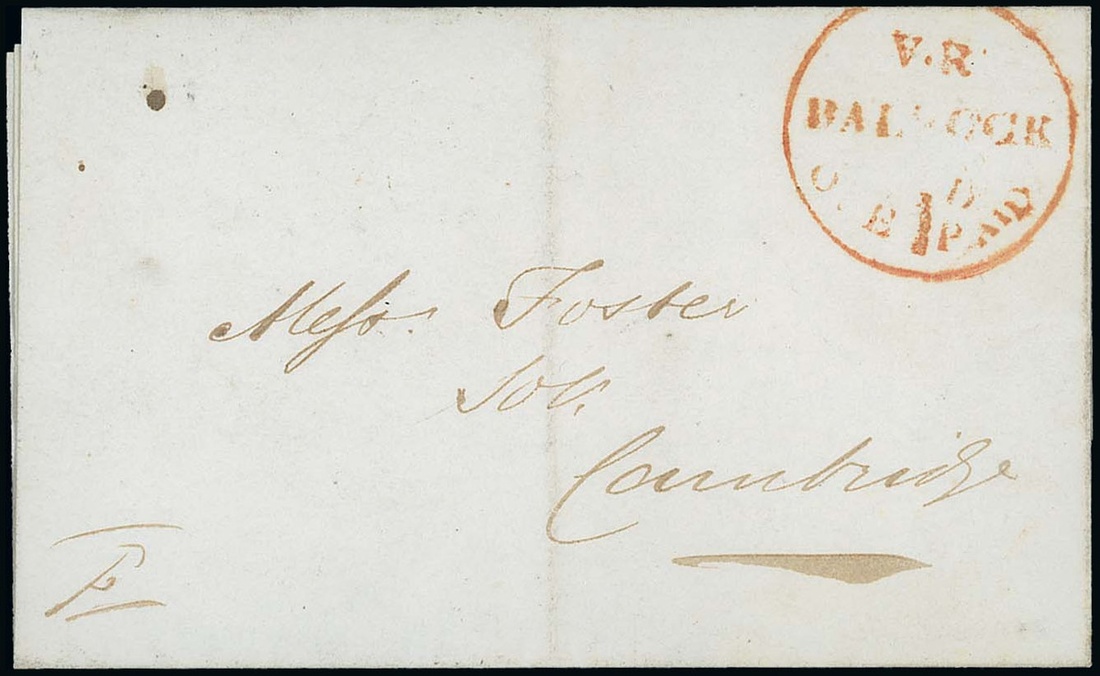 V.R
BALDOCK
1D
ONE PAID
1
Messrs. Foster
Solrs.
Cambridge
P